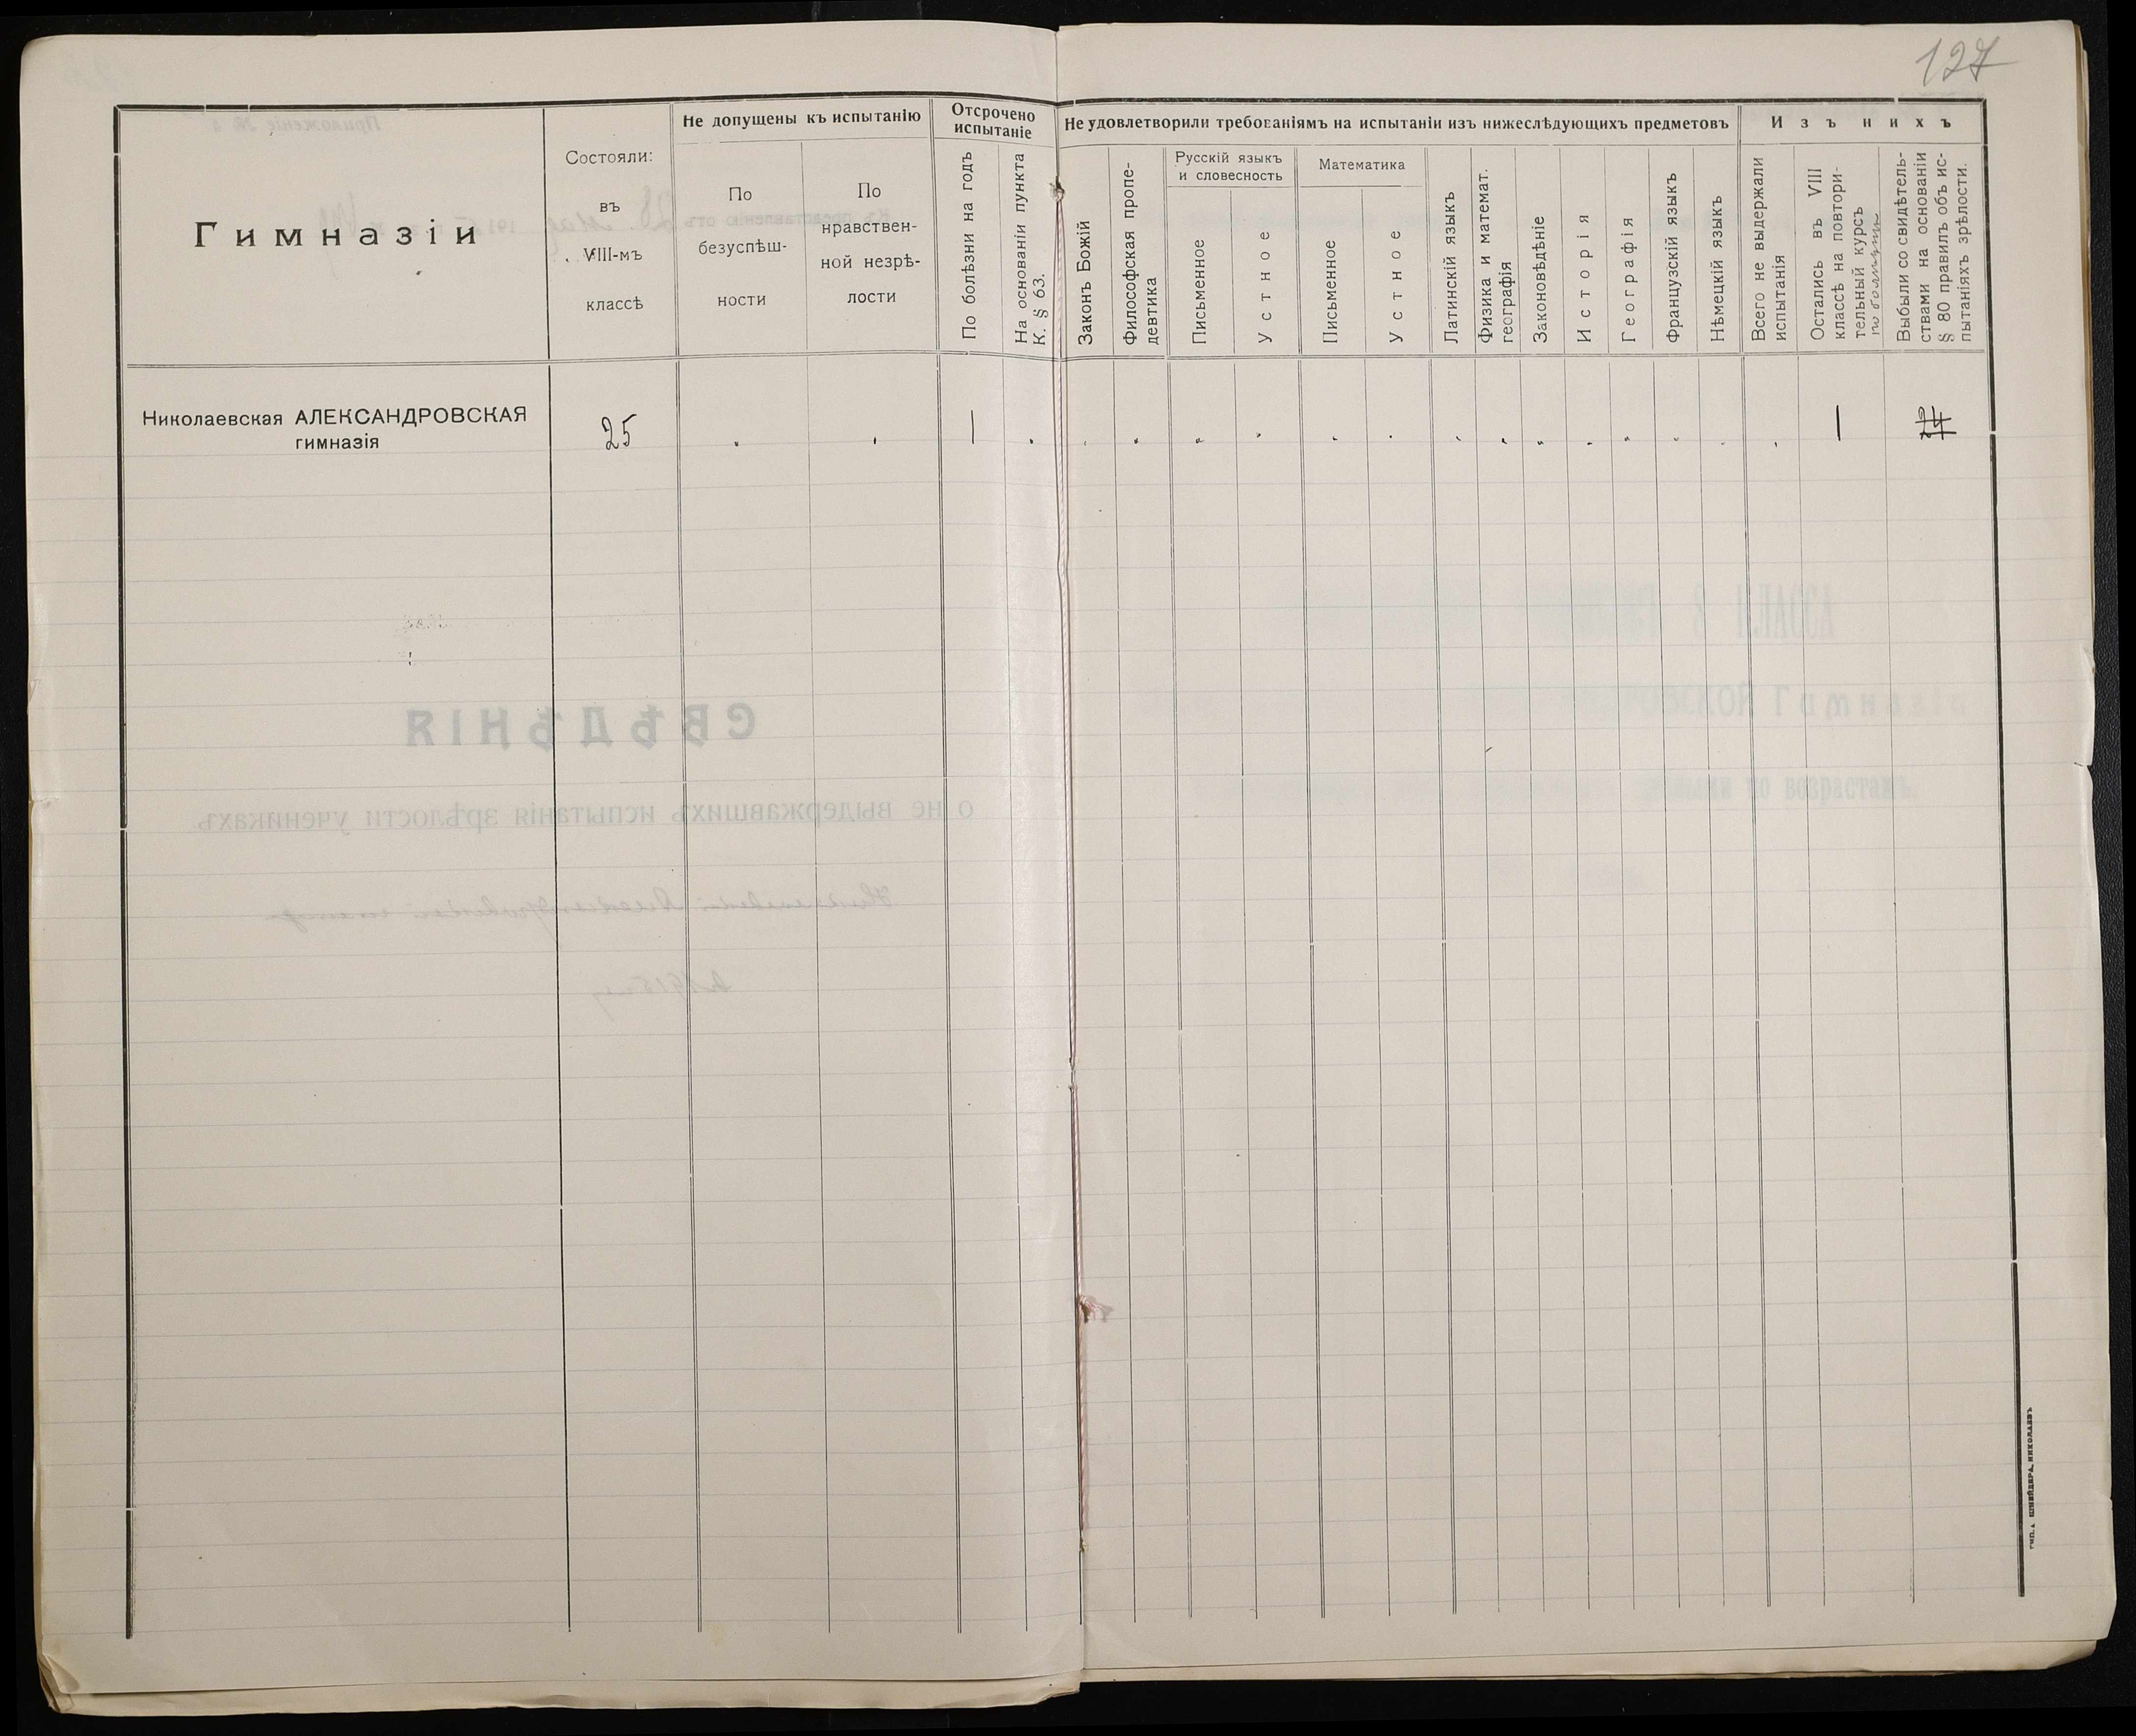 127
Гимназіи
Состояли:
въ
VIII-мъ
классѣ
Не допущены къ испытанію
По
безуспѣш-
ности
По
нравствен-
ной незрѣ-
лости
Отсрочено
испытаніе
По болѣзни на годъ
На основаніи пункта
К. § 63.
Не удовлетворили требованіямъ на испытаніи изъ нижеслѣдующихъ предметовъ
Законъ Божій
Философская пропе-
девтика
Русскій языкъ
и словесность
Письменное
Устное
Математика
Письменное
Устное
Латинскій языкъ
Физика и математ.
географія
Законовѣдѣніе
Исторія
Географія
Французскій языкъ
Нѣмецкій языкъ
Изъ нихъ
Всего не выдержали
испытанія
Остались въ VIII
классѣ на повтори-
тельный курсъ
по болѣзни
Выбыли со свидѣтель-
ствами на основаніи
§ 80 правилъ объ ис-
пытаніяхъ зрѣлости.
Николаевская АЛЕКСАНДРОВСКАЯ
гимназія
25
СВѢДѢНІЯ
о не выдержавшихъ испытанія зрѣлости ученикахъ
ТИП. А. ШНЕЙДЕРА, НИКОЛАЕВЪ